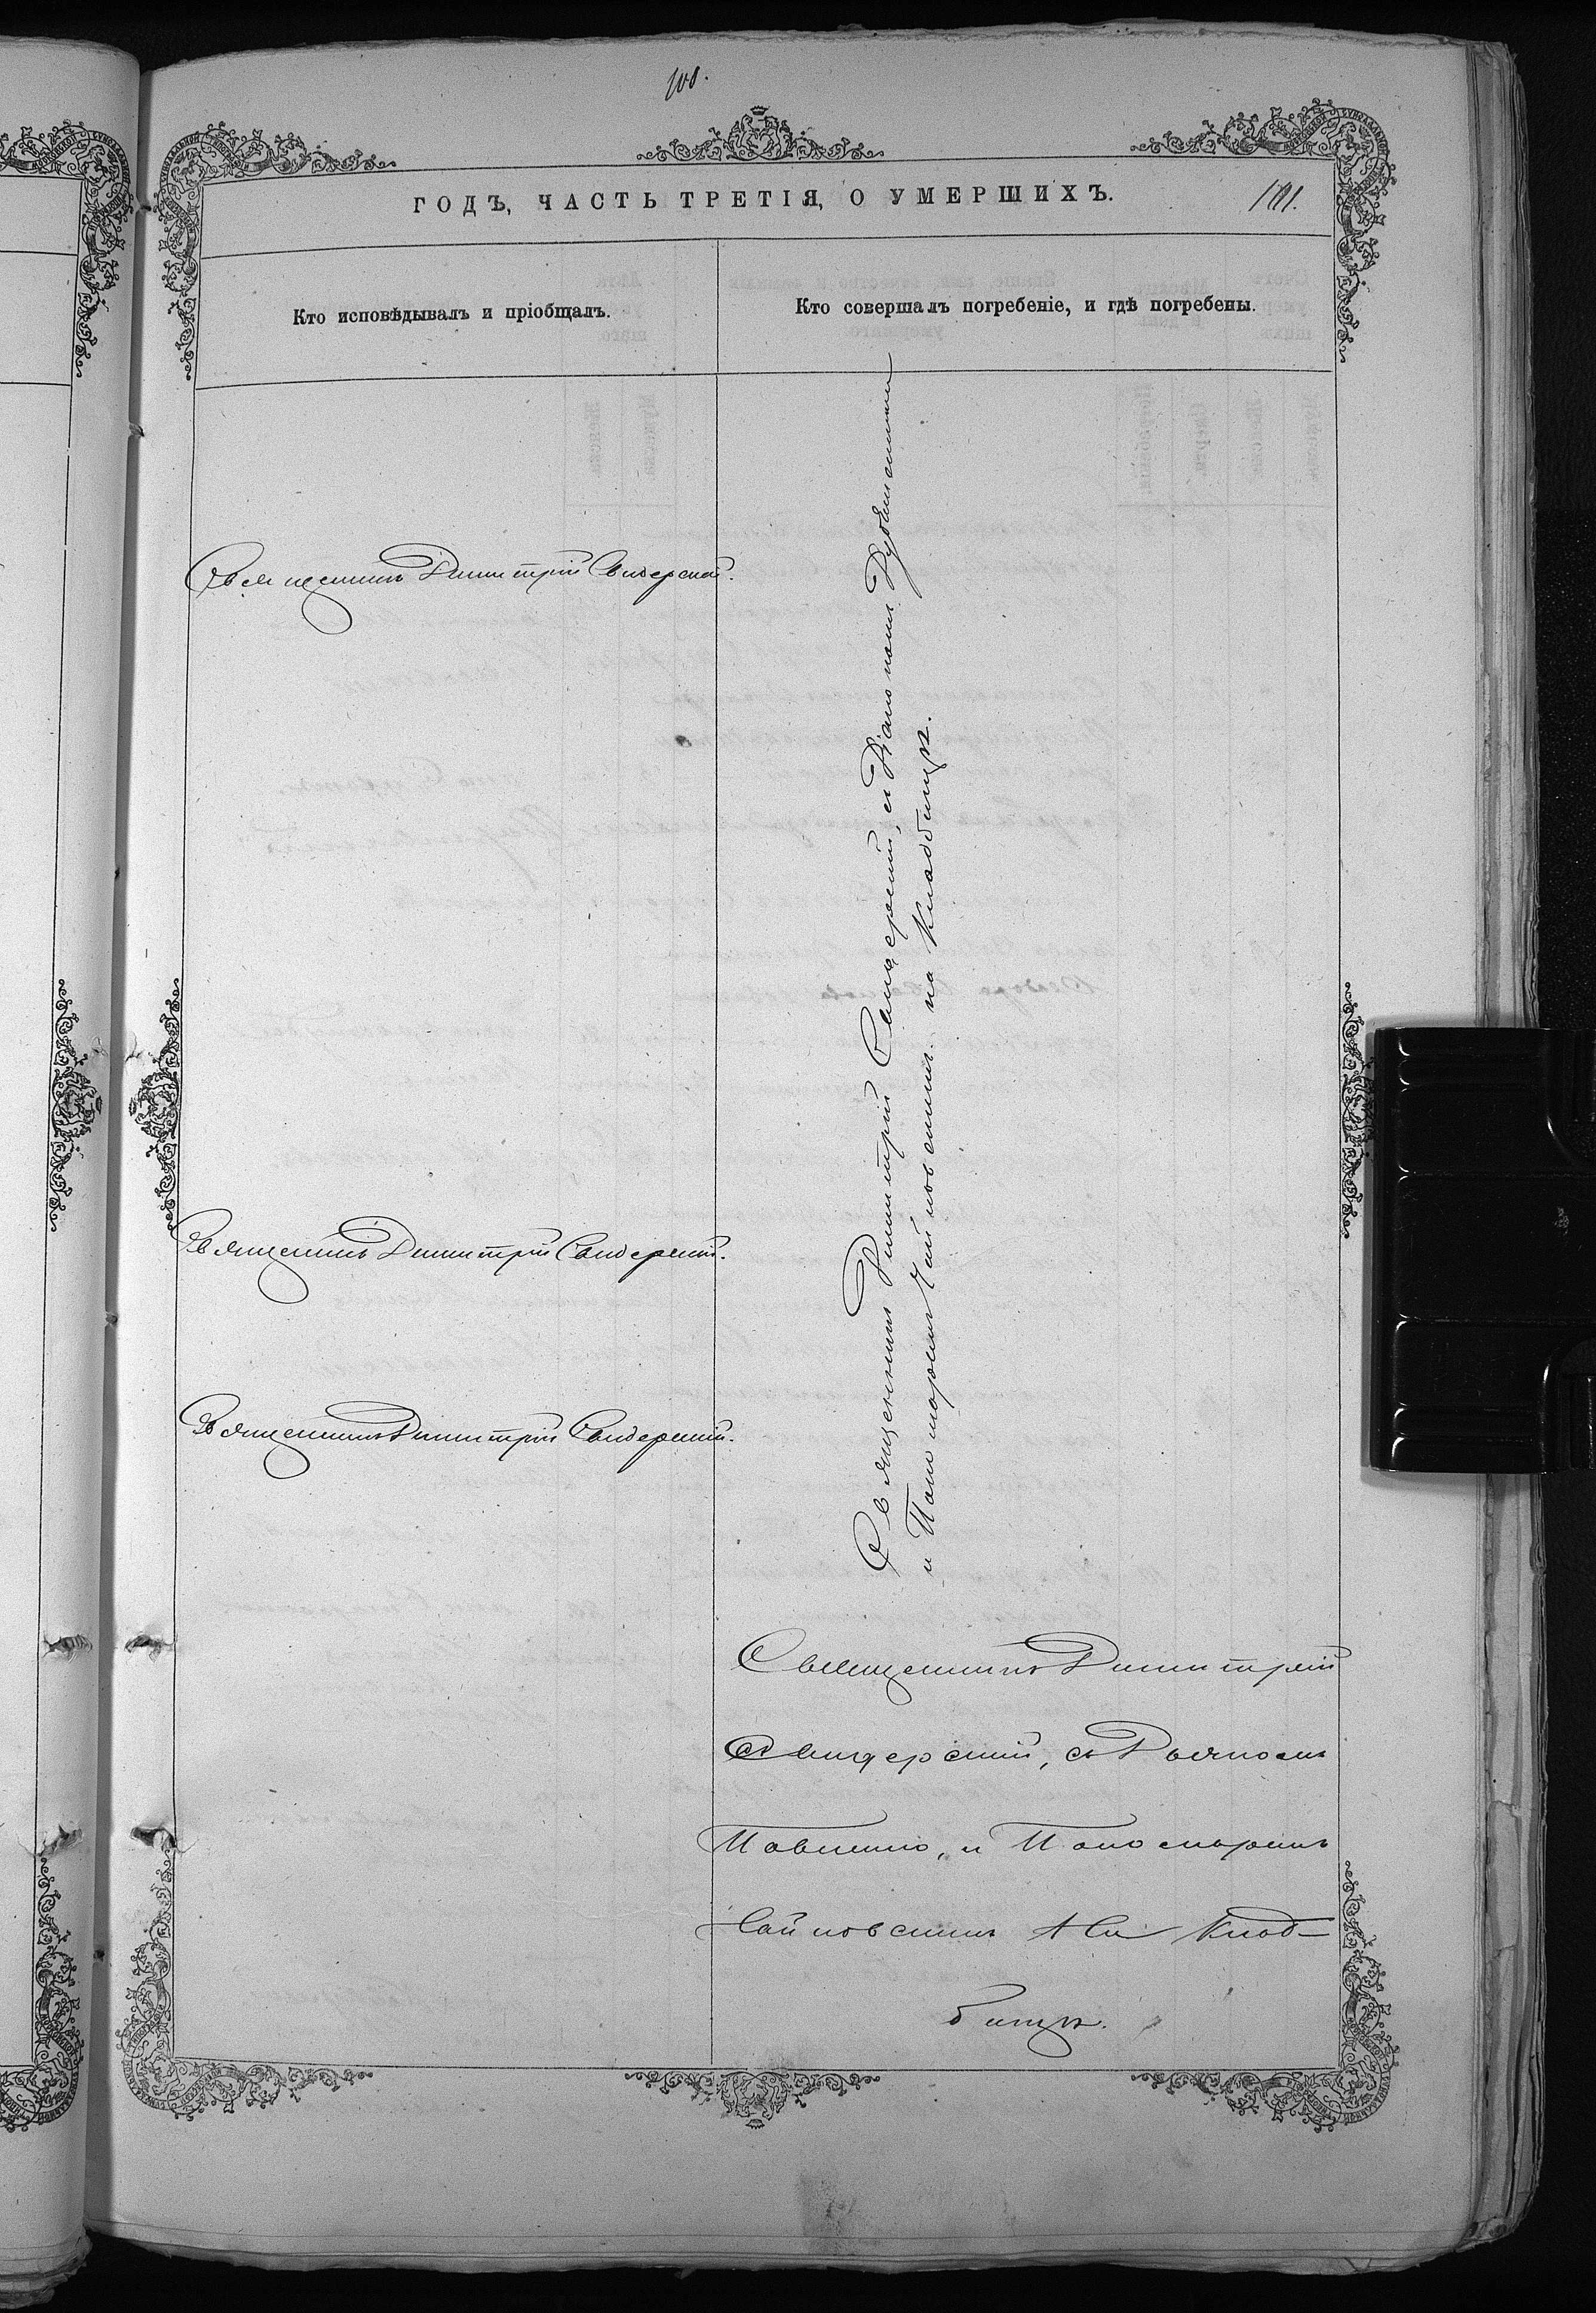 108.
ГОДЪ, ЧАСТЬ ТРЕТІЯ, О УМЕРШИХЪ.
Кто исповѣдывалъ и пріобщалъ.
Кто совершалъ погребеніе, и гдѣ погребены.
Священникъ Димитрій Свидерскій.
Священникъ Димитрій Свидерскій.
Священникъ Димитрій Свидерскій.
Священникъ Димитрій Свидерскій, съ Діакономъ
и Пономаремъ Чайковскимъ на Кладбищѣ.
Священникъ Димитрій
Свидерскій, съ
и Пономаремъ
Чайковскимъ На Клад-
бищѣ.